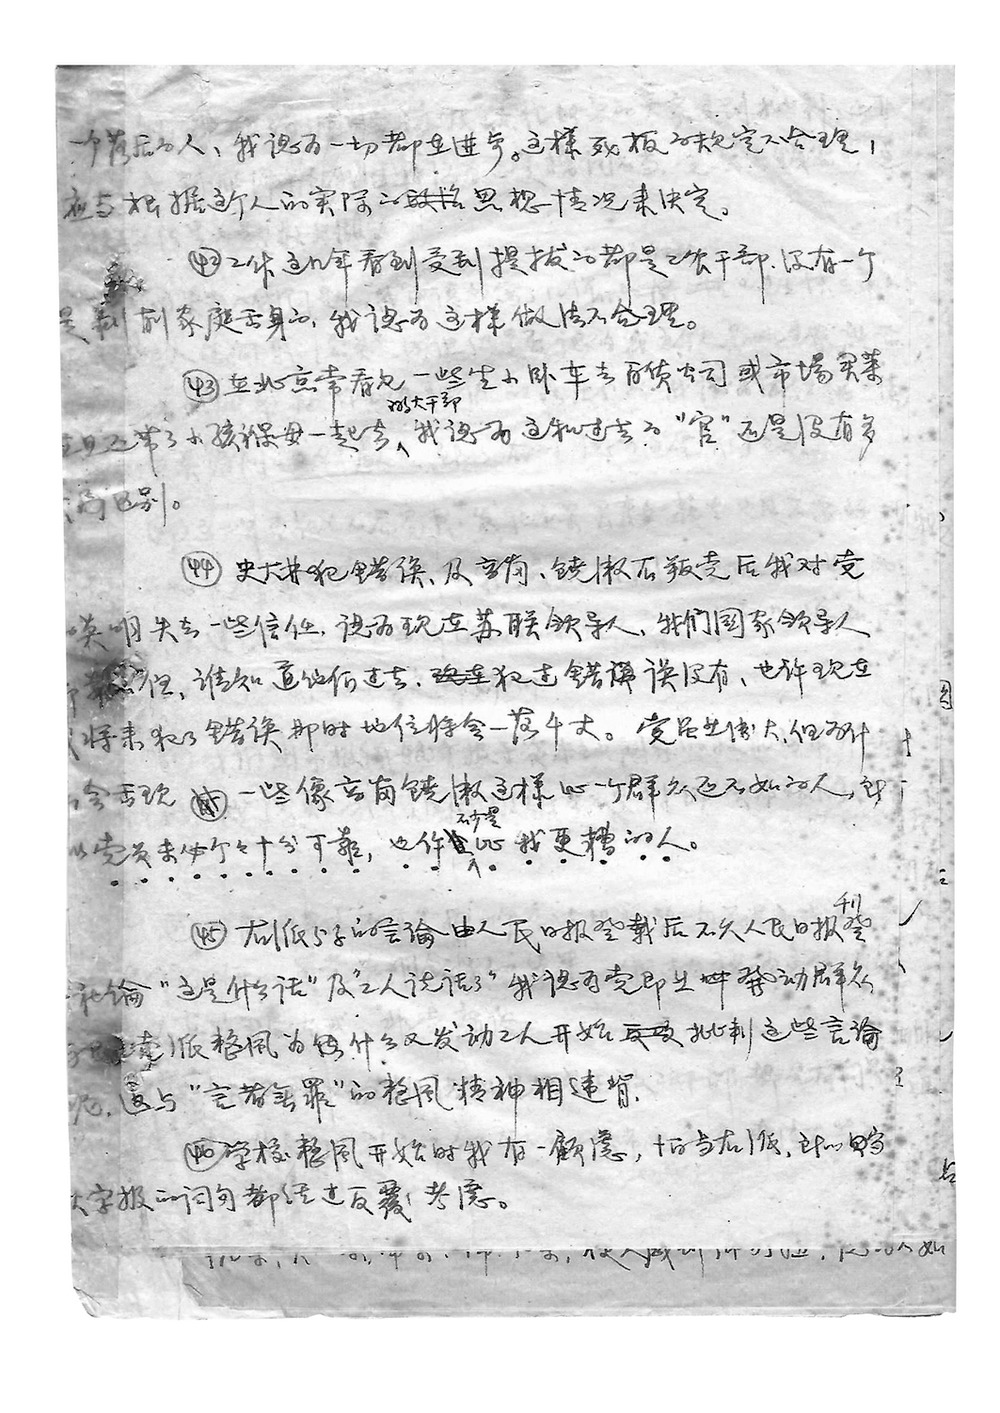 一个落后的人，我认为一切都在进步。这样死板的规定不合理，
应当根据这个人的实际的思想情况来决定。
㊷工作这几年看到受到提拔的都是工农干部，没有一个
是剥削家庭出身的，我认为这样做法不合理。
㊸在北京常看见一些坐小卧车去百货公司或市场买菜
并且还带了小孩保母一起去的大干部，我认为这和过去的“官”还是没有多
区别。
㊹史大林犯错误、及高岗、饶漱石叛党后我对党
英明失去一些信任，认为现在苏联领导人、我们国家领导人
但，谁知道他们过去犯过错误没有、也许现在
将来犯了错误那时地位将会一落千丈。党虽然伟大，但为什
会出现一些像高岗饶漱石这样比一个群众还不如的人，所
以党员未必个个十分可靠，也许不少是比我更糟的人。
㊺右派分子的言论由人民日报登载后不久人民日报刊登
社论“这是什么话”及“工人说话了”我认为党即然发动群众
整风为什么又发动工人开始批判这些言论
呢，这与“言者无罪”的整风精神相违背。
㊻学校整风开始时我有一顾虑，怕当右派，所以写
大字报的词句都经过反覆考虑。